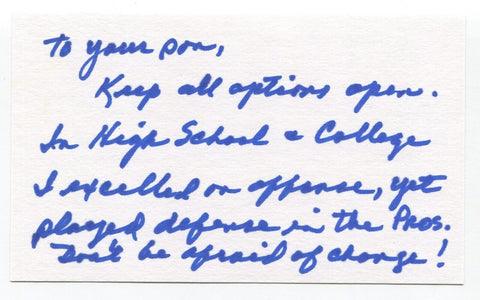 To your son,
Keep all options open.
In High School & College
I excelled on offense, yet
played defense in the Pros.
Don't be afraid of change!